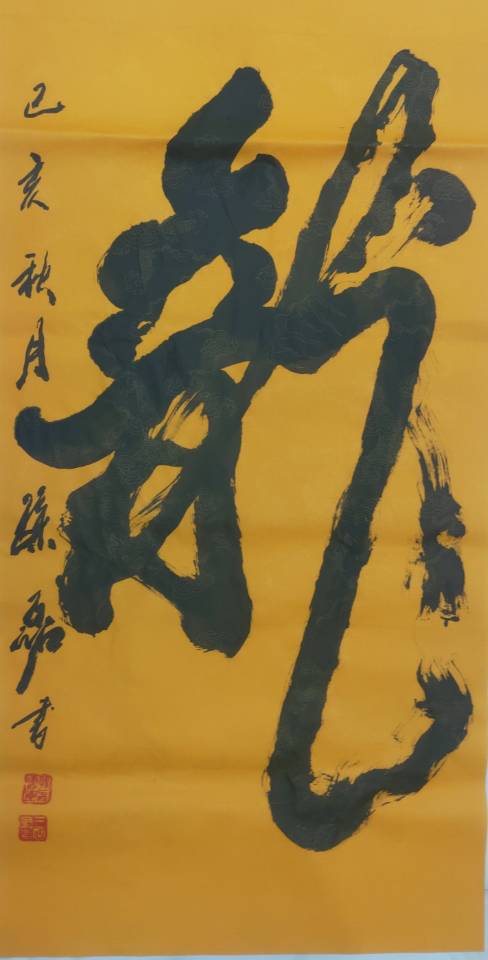 龍
己亥秋月孫磊书